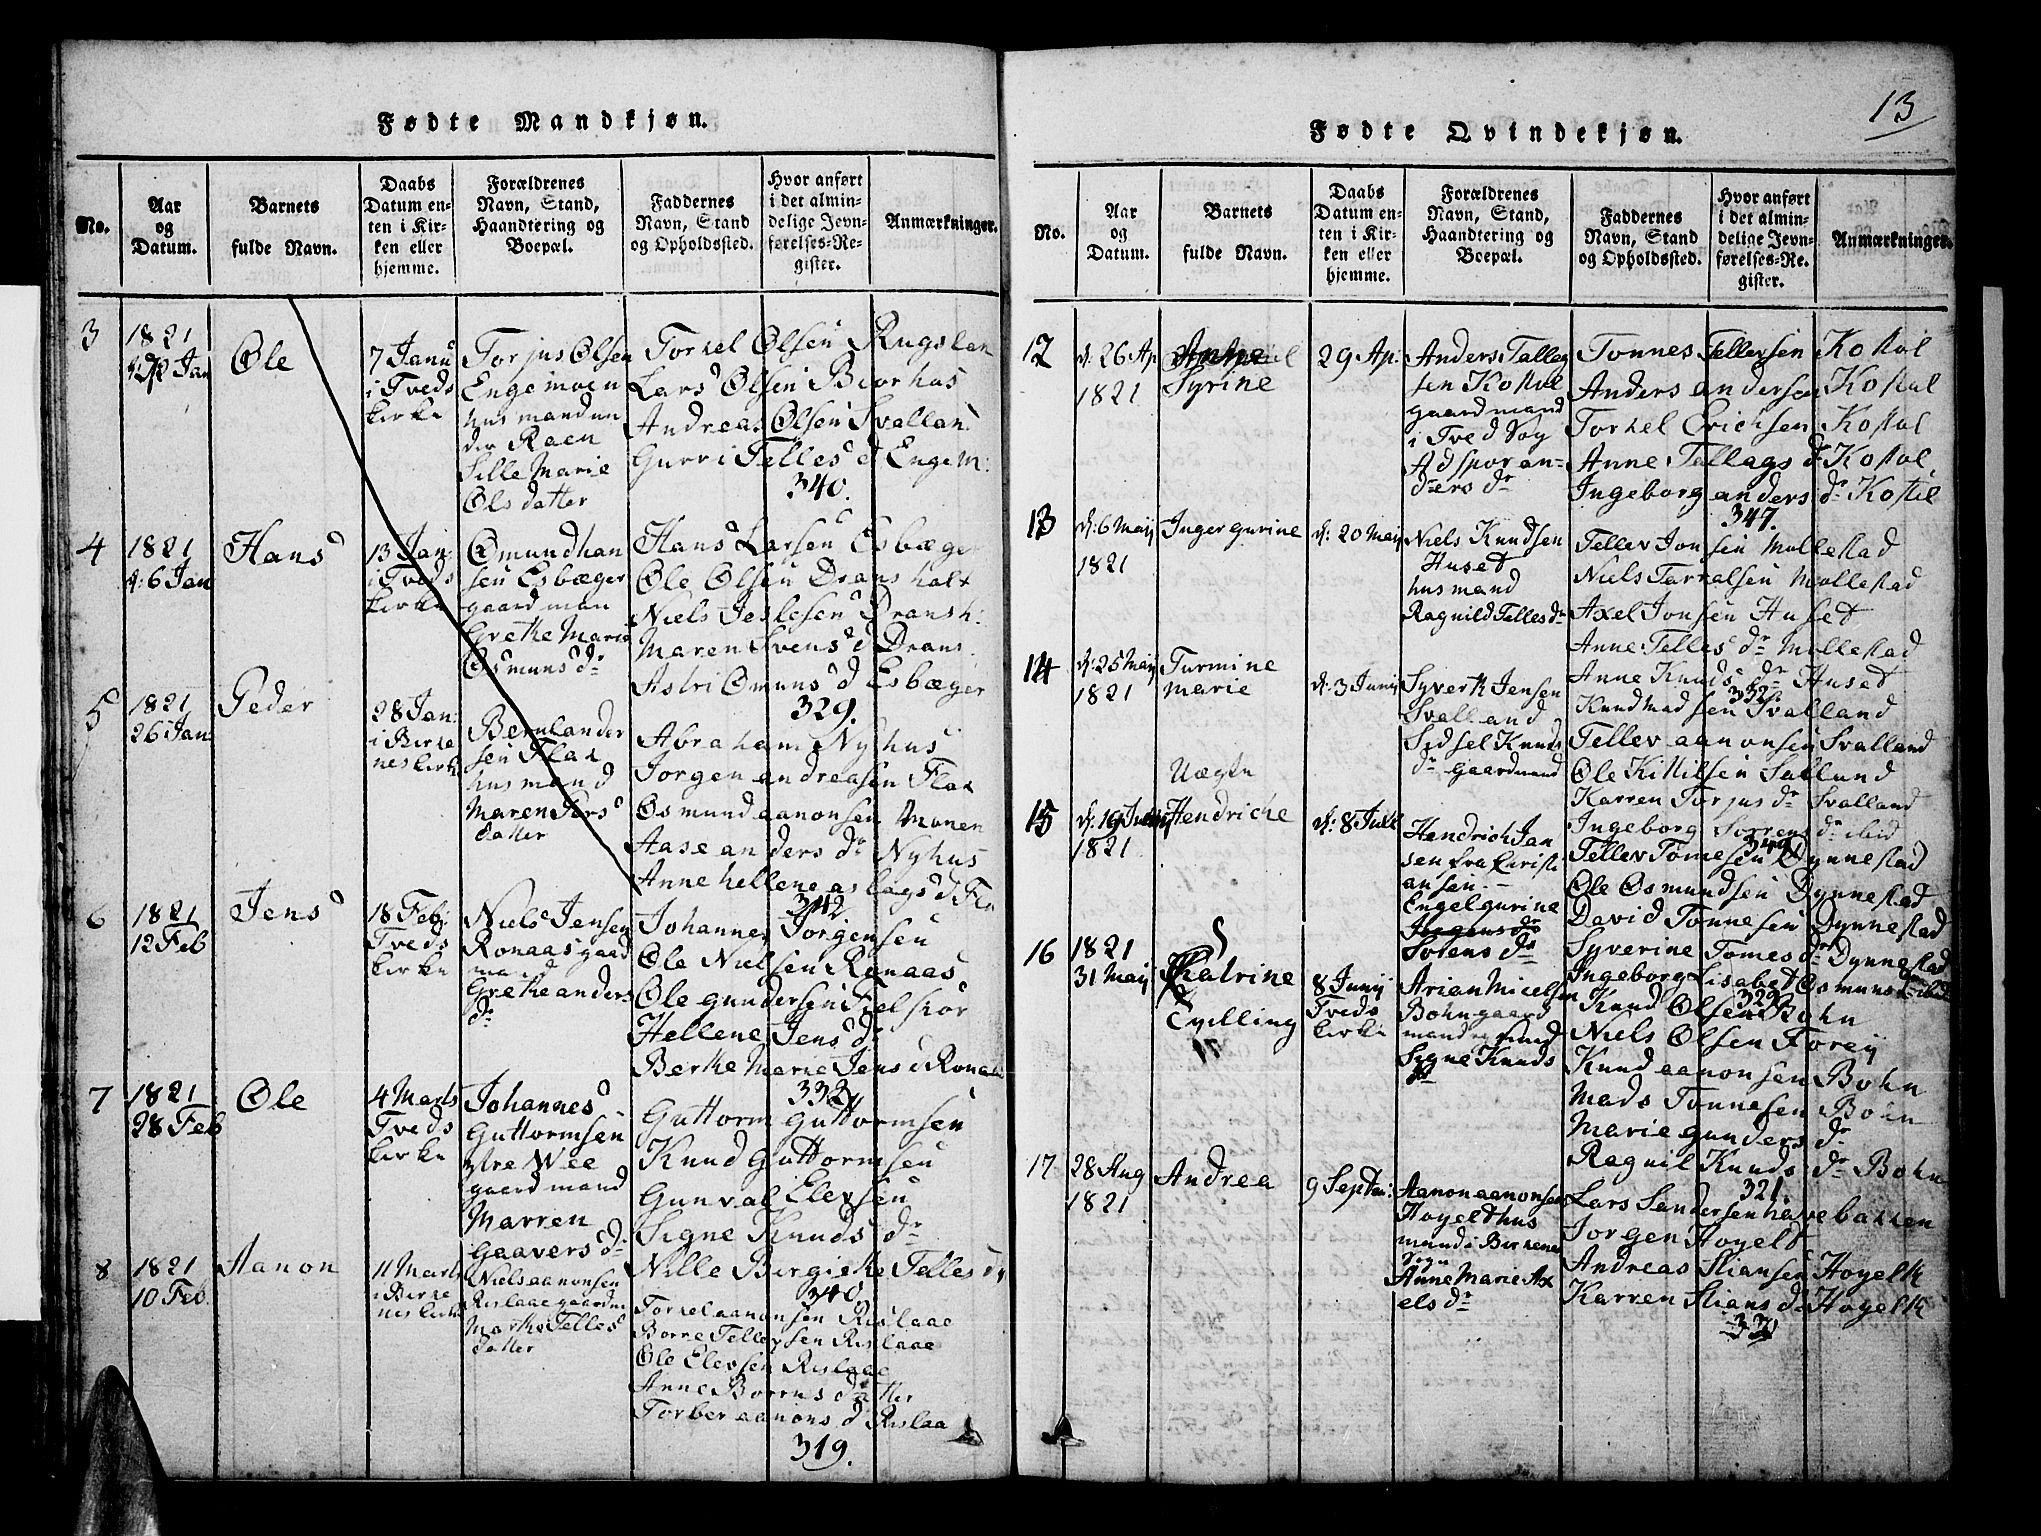 Fødte Mandkjøn.
No.
Aar
og
Datum.
Barnets
fulde Navn.
Daabs
Datum en-
ten i Kir-
ken eller
hjemme.
Forældrenes
Navn, Stand,
Haandtering og
Boepæl.
Faddernes
Navn, Stand
og Opholdssted.
Hvor anført
i det almin-
delige Jevn-
førelses-Re-
gister.
Anmærkninger.
3
1821
Jan
Ole
7 Janu
i Tveds
kirke
Torjus Olsen
Engemoen
husmand un
der Raen
Sille Marie
Olsdatter
Torkel Olsen Rugslan
Lars Olsen Biorhus
Andreas Olsen Svallan
Gurri Telles d Engem:
340.
4
1821
d: 6 Jan
Hans
13 Jan:
i Tveds
kirke
Omund han
sen Esbæger
gaardman
Grethe Marie
Osmuns dr
Hans Larsen Esbæger
Ole Olsen Dransholt
Niels Jeslesen Dransh:
Maren Svens d Drans
Astri Omuns d Esbæger
329.
5
1821
26 Jan
Peder
28 Jan:
i Birke
nes kirke
Bernt ander
sen Flak
husmand
Maren Lars
datter
Abraham Nyhus
Jorgen andreasen Flak
Osmund aanonsen Monen
Aase anders dr Nyhus
Anne hellene aslags d Fla
342
6
1821
12 Feb
Jens
18 Feb:
Tveds
kirke
Niels Jensen
Ronaas gaard
mand
Grethe anders
dr
Johannes Jorgensen
Ole Nielsen Ronaas
Ole gundersen Fielskor
Hellene Jens dr
Berthe Marie Jens d Ronaas
332
7
1821
28 Feb
Ole
4 Marts
Tveds
kirke
Johannes
Guttormsen
ytre Wee
gaardmand
Marren
Gaavers dr
Guttorm Guttormsen
Knud Guttormsen
Gunval Elevsen
Signe Knuds dr
Nille Birgithe Telles dr
340
8
1821
10 Feb.
Aanon
11 Marts
i Birke
nes kirke
Niels aanonsen
Rislaae gaardm
Marthe Telles
datter
Torkel aanonsen Rislaae
Borre Tellevsen Rislaae
Ole Elevsen Rislaae
Anne Borrus datter
Torber aanons d Rislaa
319.
13
Fødte Qvindekjøn.
No.
Aar
og
Datum.
Barnets
fulde Navn.
Daabs
Datum en-
ten i Kir-
ken eller
hjemme.
Forældrenes
Navn, Stand,
Haandtering og
Boepæl.
Faddernes
Navn, Stand
og Opholdssted.
Hvor anført
i det almin-
delige Jevn-
førelses-Re-
gister.
Anmærkninger.
12
d: 26 Ap
1821
Syrine
29 Ap:
Anders Talleg
sen Kostøl
gaardmand
i Tved Sog
Adspor an-
ders dr
Tonnes Tellevsen Kostøl
Anders andersen Kostøl
Torkel Erichsen Kostøl
Anne Tallags dr Kostøl
Ingeborg anders dr Kostøl
347.
13
d: 6 Maij
1821
Inger gurine
d: 20 Maij
Niels Knudsen
Huset
husmand
Ragnild Telles dr
Tellev Jonsen Mollestad
Niels Tarralsen Mollestad
Axel Jonsen Huset
Anne Telles dr Mollestad
Anne Knuds dr Huset
332
14
d: 25 Maij
1821
Turmine
marie
d: 3 Junij
Syvert Jensen
Svalland
Sidsel Knuds
dr gaardmand
Knud Madsen Svalland
Tellev aanonsen Svalland
Ole Kittilsen Salland
Karren Torjus dr Svalland
Ingeborg Sorrens dr ibid
15
1821
Uægte
Hendriche
d: 8 Juli
Hendrich Jan
sen fra Christi
ansen. –
Engel gurine
Sorens dr
Tellev Tomesen Dynnestad
Ole Osmundsen Dynnestad
David Tonnesen Dynnestad
Syverine Tomes dr Dynnestad
Ingeborg Lisabet Osmuns dr ibid
329
16
1821
31 Maij
Katrine
Tvilling
8 Junij
Tveds
kirke
Arian Micelsen
Bohn gaard
mand
Sygne Knuds
dr
Knud Olsen Bohn
Niels Olsen Forey
Knud aanonsen Bohn
Mads Tonnesen Bohn
Marie gunders dr
Ragnil Knuds dr Bohn
321.
17
28 Aug
1821
Andrea
9 Septem:
Aanon aanonsen
Hoyelt hus
mand i Birkenes
Sogn
Anne Marie Ax
els dr
Lars Sandersen havebakken
Jorgen Hoyelt
Andreas Stiansen Hoyelt
Karren Stians dr Hoyelt